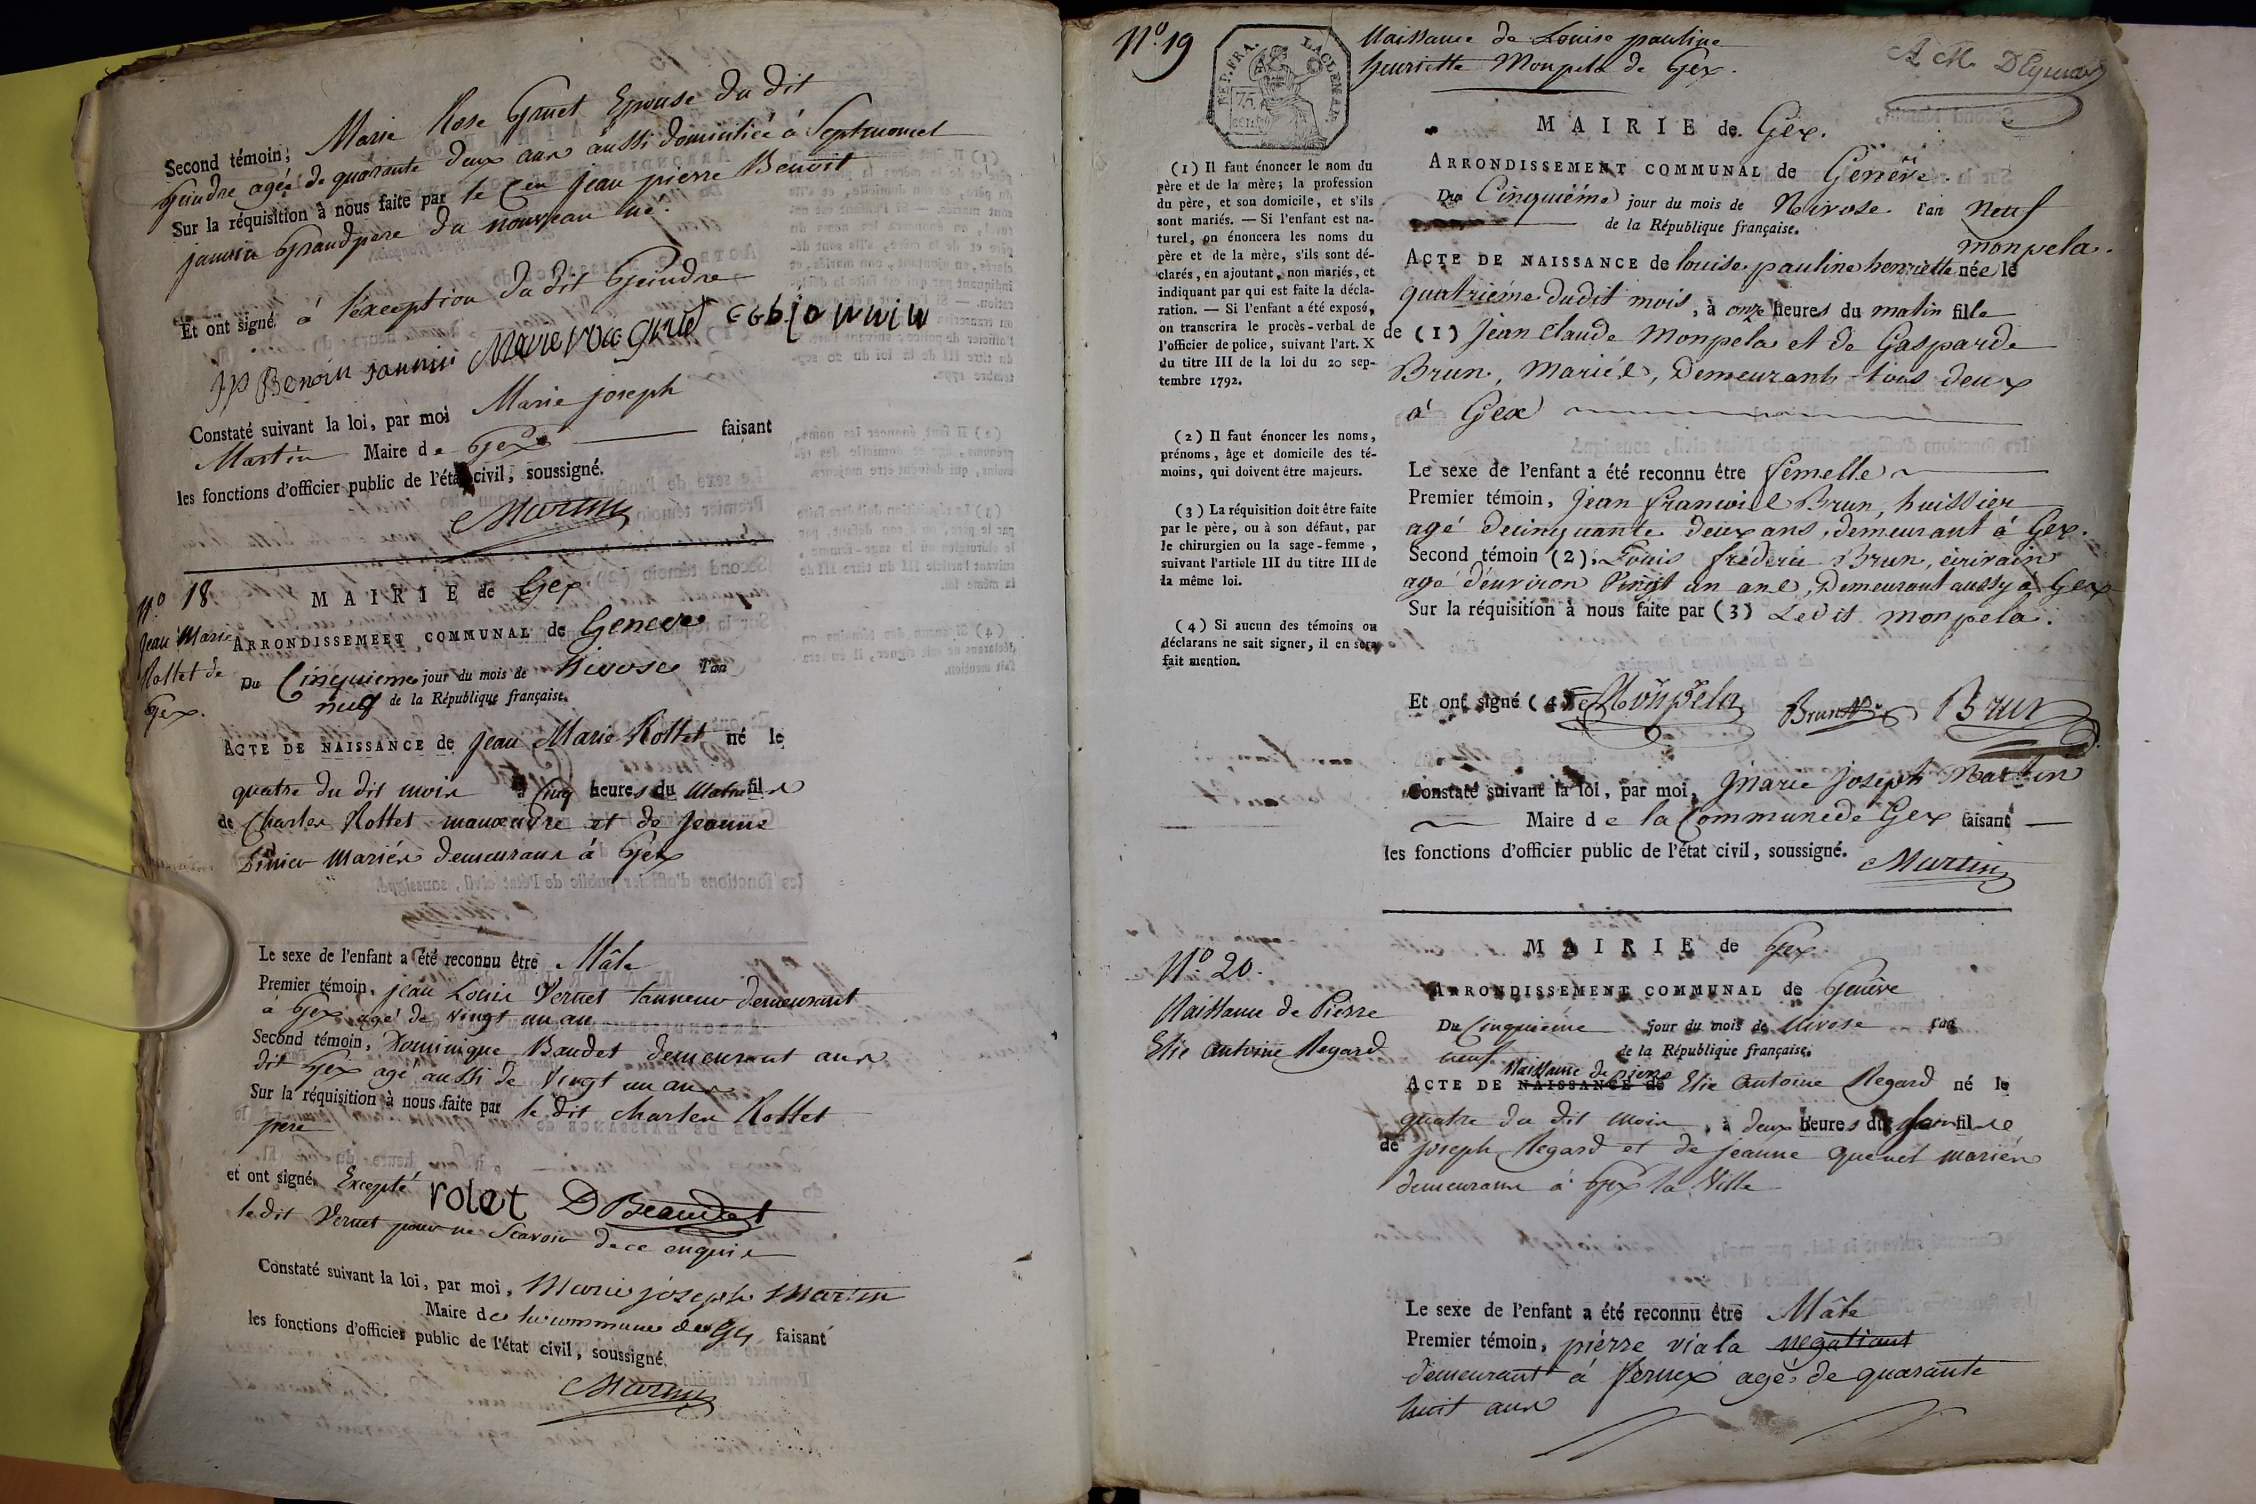 Second témoin, Marie Rose Gruet Epouse du dit
Gindre agée de quarante deux ans aussi domiciliée à Septmoncel
Sur la réquisition à nous faite par le Cen Jean pierre Benoit
jannin Grandpere du nouveau né.
Et ont signé à l'éxception du dit Geindre
JP Benoiu jannin Marie rose Gruet
Constaté suivant la loi, par moi Marie joseph
Martin Maire de Gex faisant
les fonctions d'officier public de l'état civil, soussigné.
Martin
No. 18
Jean Marie
Rottet de
Gex.
MAIRIE de Gex
ARRONDISSEMEET COMMUNAL de Geneve
Du Cinquieme jour du mois de Nivose l'an
neuf de la République française.
ACTE DE NAISSANCE de Jean Marie Rottet né le
quatre du dit mois à Cinq heures du matin fils
de Charles Rottet manoeuvre et de jeanne
mariés demeurans à Gex
Le sexe de l'enfant a été reconnu être Mâle
Premier témoin, jean Louis Vernet tanneur demeurant
à Gex agé de vingt un an
Second témoin, Dominique Baudet demeurant aux
dit Gex agé aussi de vingt un ans
Sur la réquisition à nous faite par le dit charles Rottet
pere
et ont signé, Excepté rolet D Beaudet
le dit Vernet pour ne Scavoir de ce enquis
Constaté suivant la loi, par moi, Marie joseph Martin
Maire de la commune de Gex faisant
les fonctions d'officier public de l'état civil, soussigné.
Martin
No. 19
REP. FRA.
75 cent.
Naissance de Louise pauline
henriette Monpela de Gex.
MAIRIE de Gex.
ARRONDISSEMENT COMMUNAL de Genève.
Du Cinquiéme jour du mois de Nivose l'an neuf
de la République française.
monpela.
ACTE DE NAISSANCE de louise pauline henriette née le
quatriéme dudit mois, à onze heures du matin fille
de (1) Jean Claude Monpela et de Gasparde
Brun, Mariés, Demeurants tous deux
à Gex
Le sexe de l'enfant a été reconnu être femelle
Premier témoin, Jean francois Brun, huissier
agé decinquante deux ans, demeurant à Gex.
Second témoin (2), Louis fréderic Brun, écrivain
agé d'environ Vingt un ans, Demeurant aussy à Gex
Sur la réquisition à nous faite par (3) Ledit monpela.
Et ont signé (4) Monpela Brun Brun
Constaté suivant la loi, par moi, Marie Joseph Martin
Maire de la Commune de Gex faisant
les fonctions d'officier public de l'état civil, soussigné.
Martin
(1) Il faut énoncer le nom du
père et de la mère; la profession
du père, et son domicile, et s'ils
sont mariés. — Si l'enfant est na-
turel, on énoncera les noms du
père et de la mère, s'ils sont dé-
clarés, en ajoutant, non mariés, et
indiquant par qui est faite la décla-
ration. — Si l'enfant a été exposé,
on transcrira le procès-verbal de
l'officier de police, suivant l'art. X
du titre III de la loi du 20 sep-
tembre 1792.
(2) Il faut énoncer les noms,
prénoms, âge et domicile des té-
moins, qui doivent être majeurs.
(3) La réquisition doit être faite
par le père, ou à son défaut, par
le chirurgien ou la sage-femme,
suivant l'article III du titre III de
la même loi.
(4) Si aucun des témoins ou
déclarans ne sait signer, il en sera
fait mention.
No. 20.
Naissance de Pierre
Elie Antoine Regard
MAIRIE de Gex
ARRONDISSEMENT COMMUNAL de Genève
Du Cinquiéme jour du mois de Nivose l'an
neuf de la République française.
Naissance de pierre
ACTE DE NAISSANCE de Elie Antoine Regard né le
quatre du dit mois, à deux heures du fils
de joseph Regard et de jeanne quenet mariés
demeurans à Gex la Ville
Le sexe de l'enfant a été reconnu être Mâle
Premier témoin, pierre viala negotiant
demeurant à fernex agé de quarante
huit ans